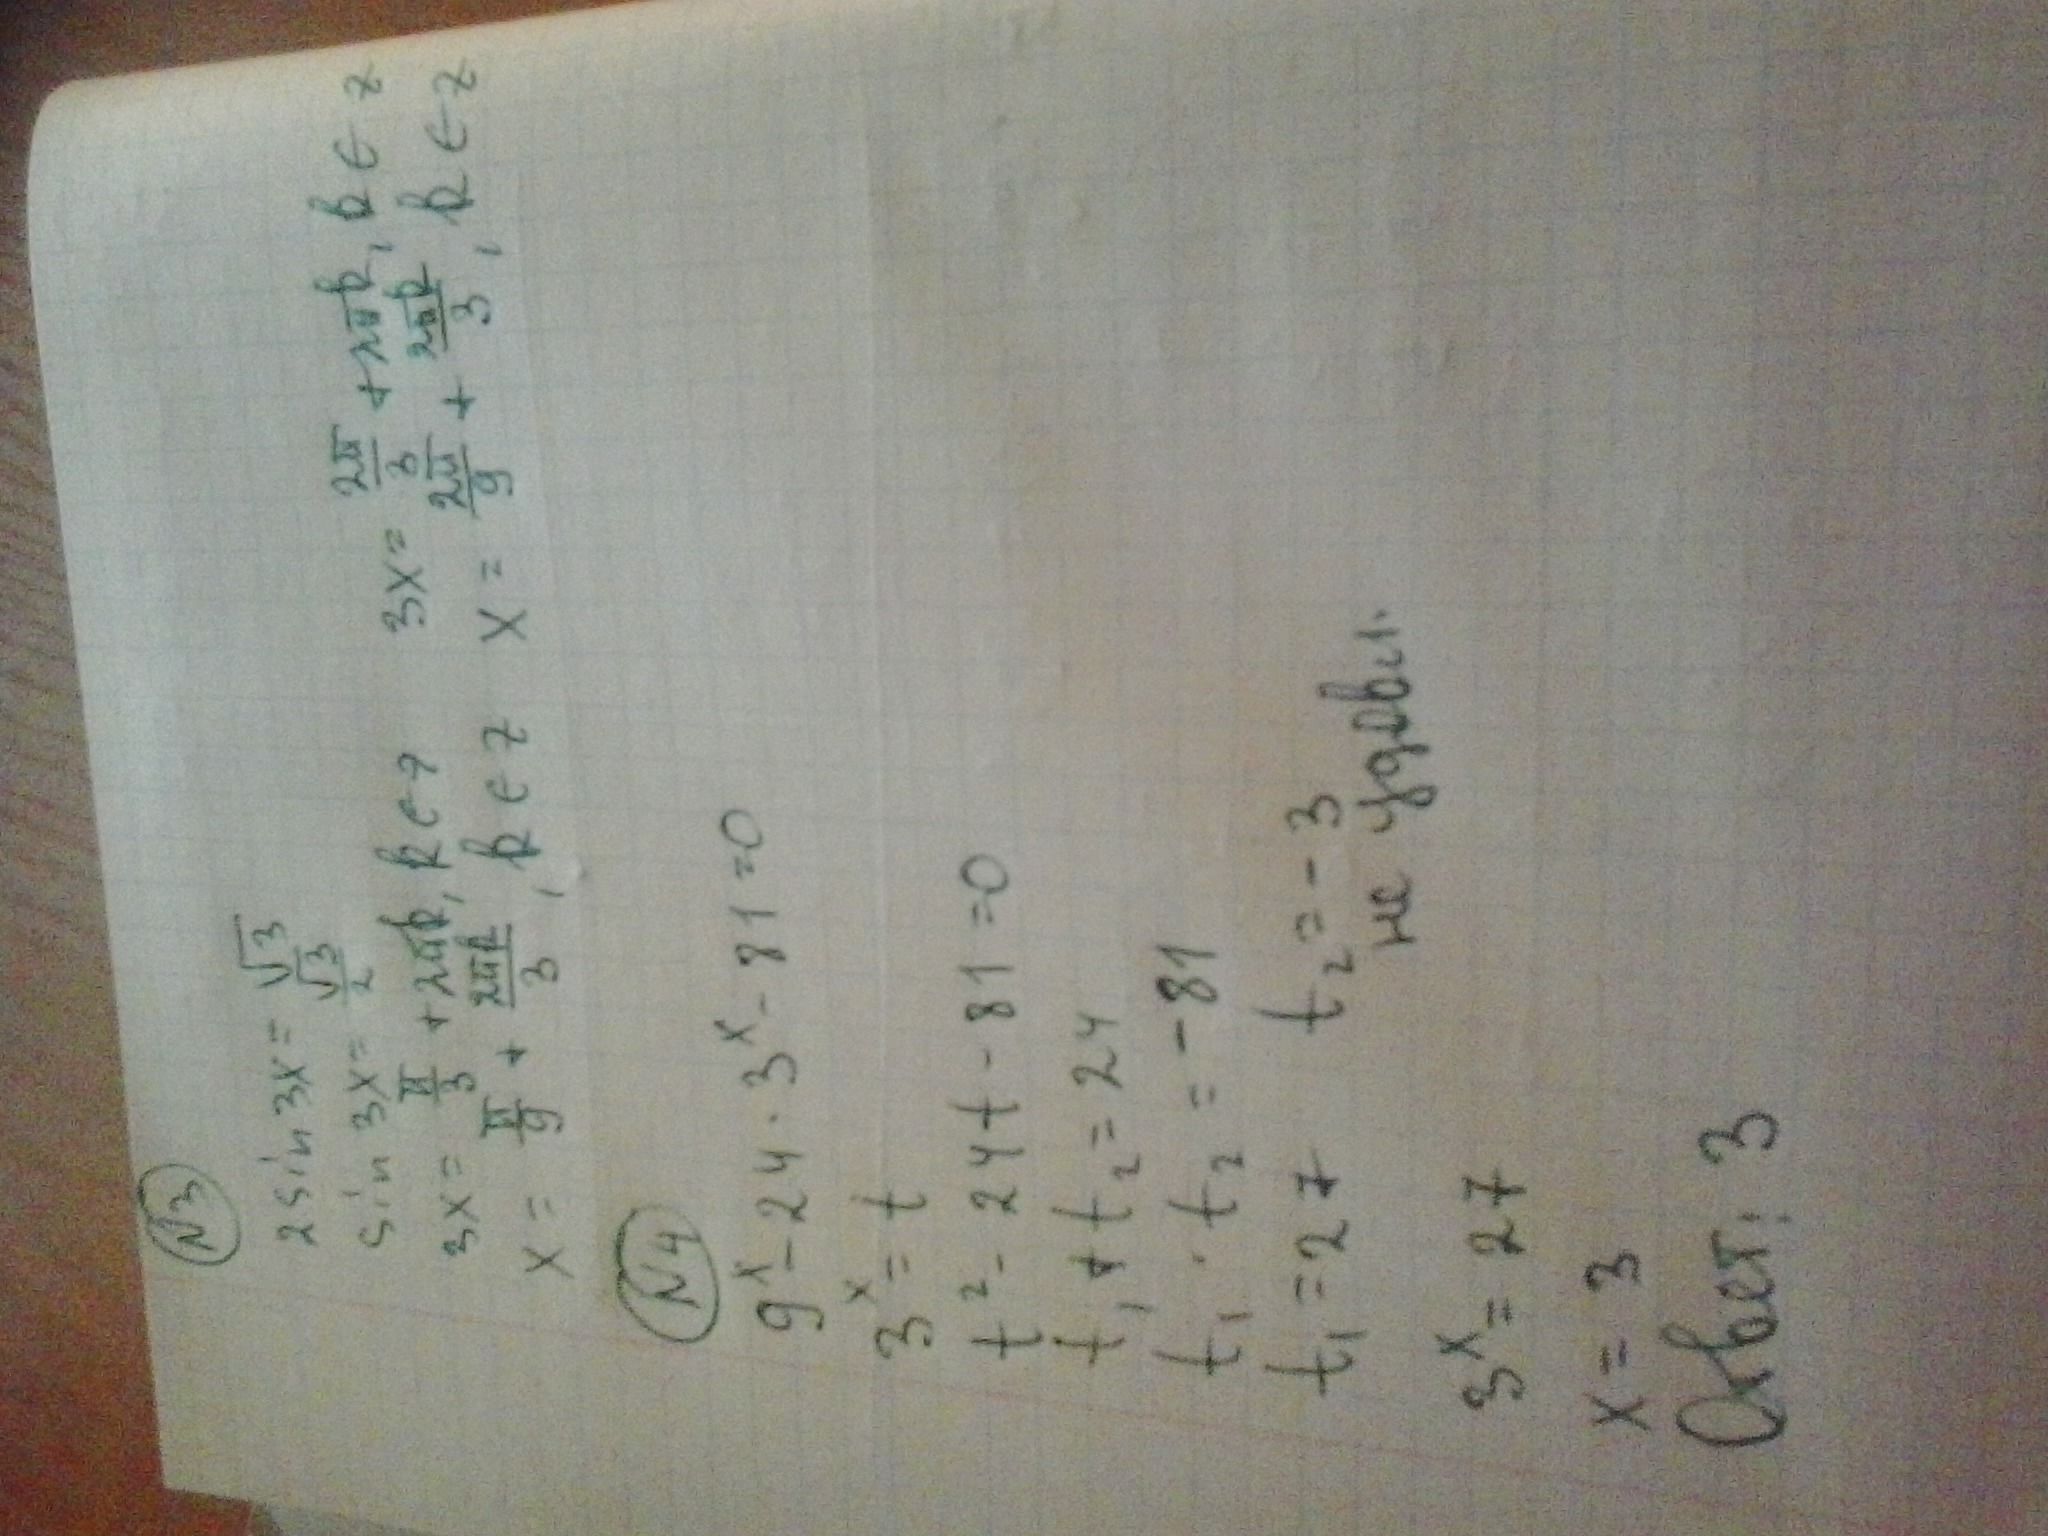 N3
2 sin 3x = √3
sin 3x = √3/2
3x = π/3 + 2πk, k ∈ z 3x = 2π/3 + 2πk, k ∈ z
x = π/9 + 2πk/3, k ∈ z x = 2π/9 + 2πk/3, k ∈ z
N4
9^x - 24 · 3^x - 81 = 0
3^x = t
t² - 24t - 81 = 0
t₁ + t₂ = 24
t₁ · t₂ = -81
t₁ = 27 t₂ = -3
не удовл.
3^x = 27
x = 3
Ответ: 3